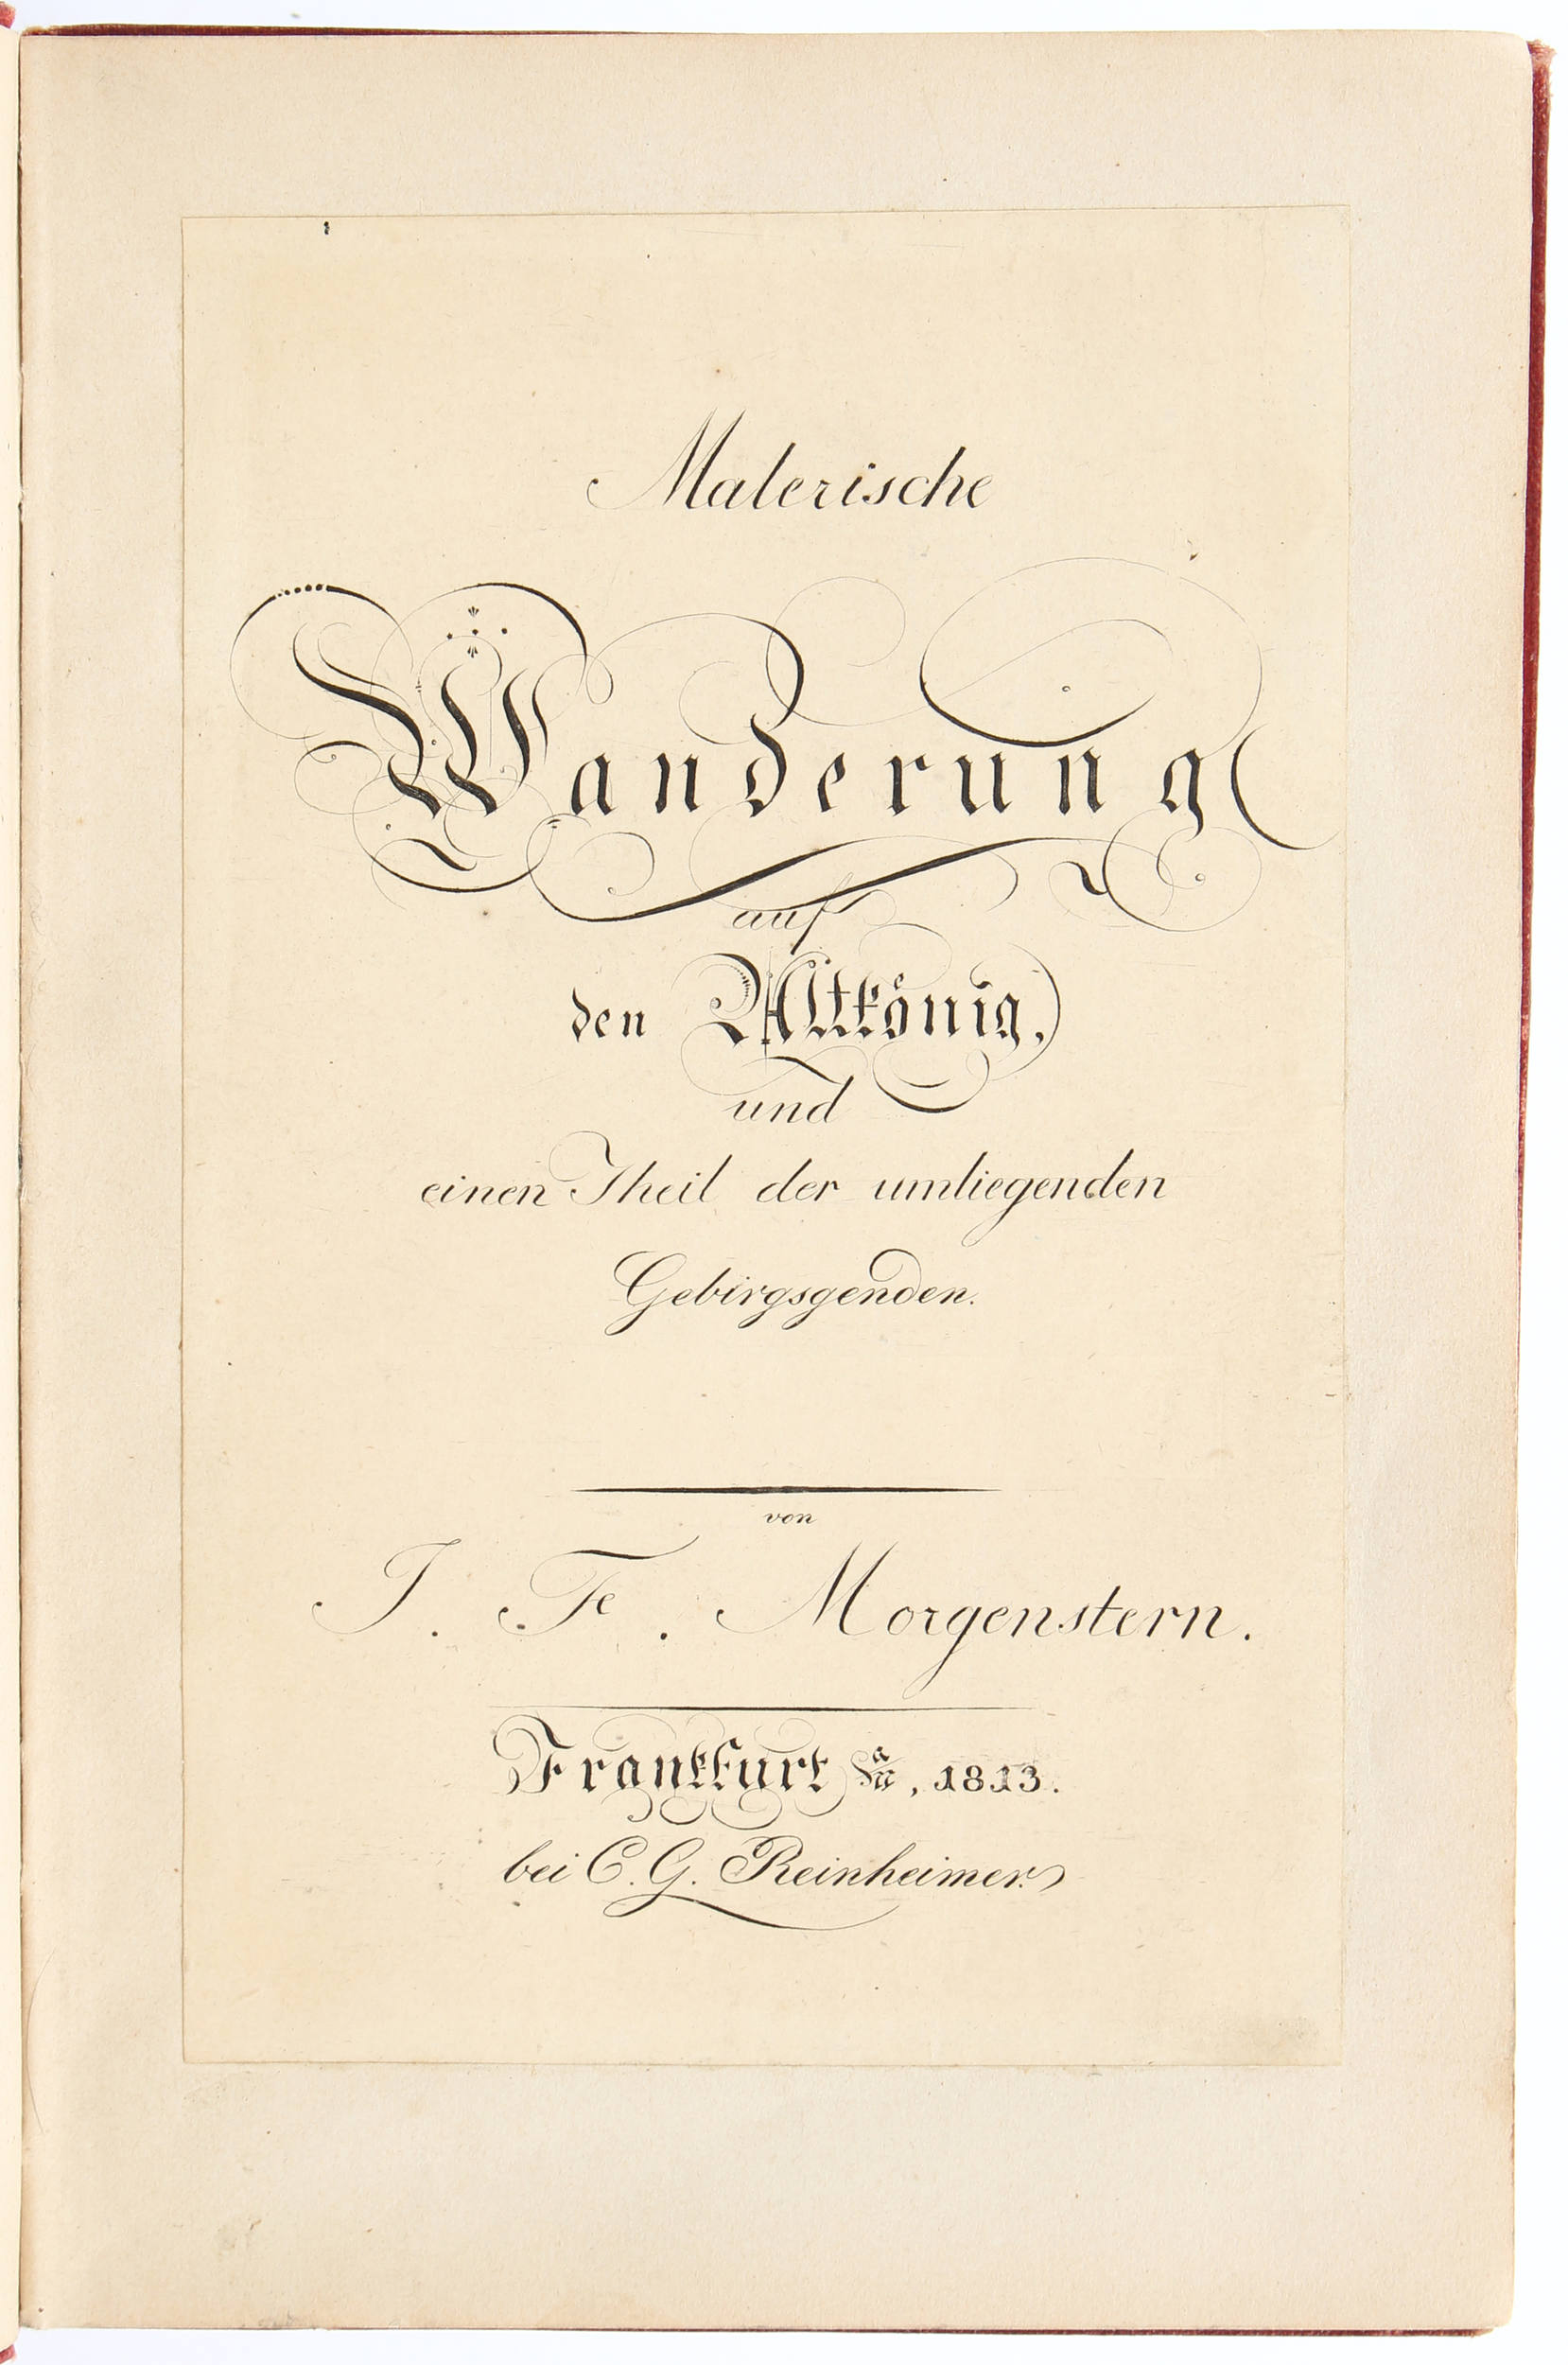 Malerische
Wanderung
auf
den Altkönig,
und
einen Theil der umliegenden
Gebirgsgenden.
von
J. Fe. Morgenstern.
Frankfurt a/m, 1813.
bei C. G. Reinheimer.